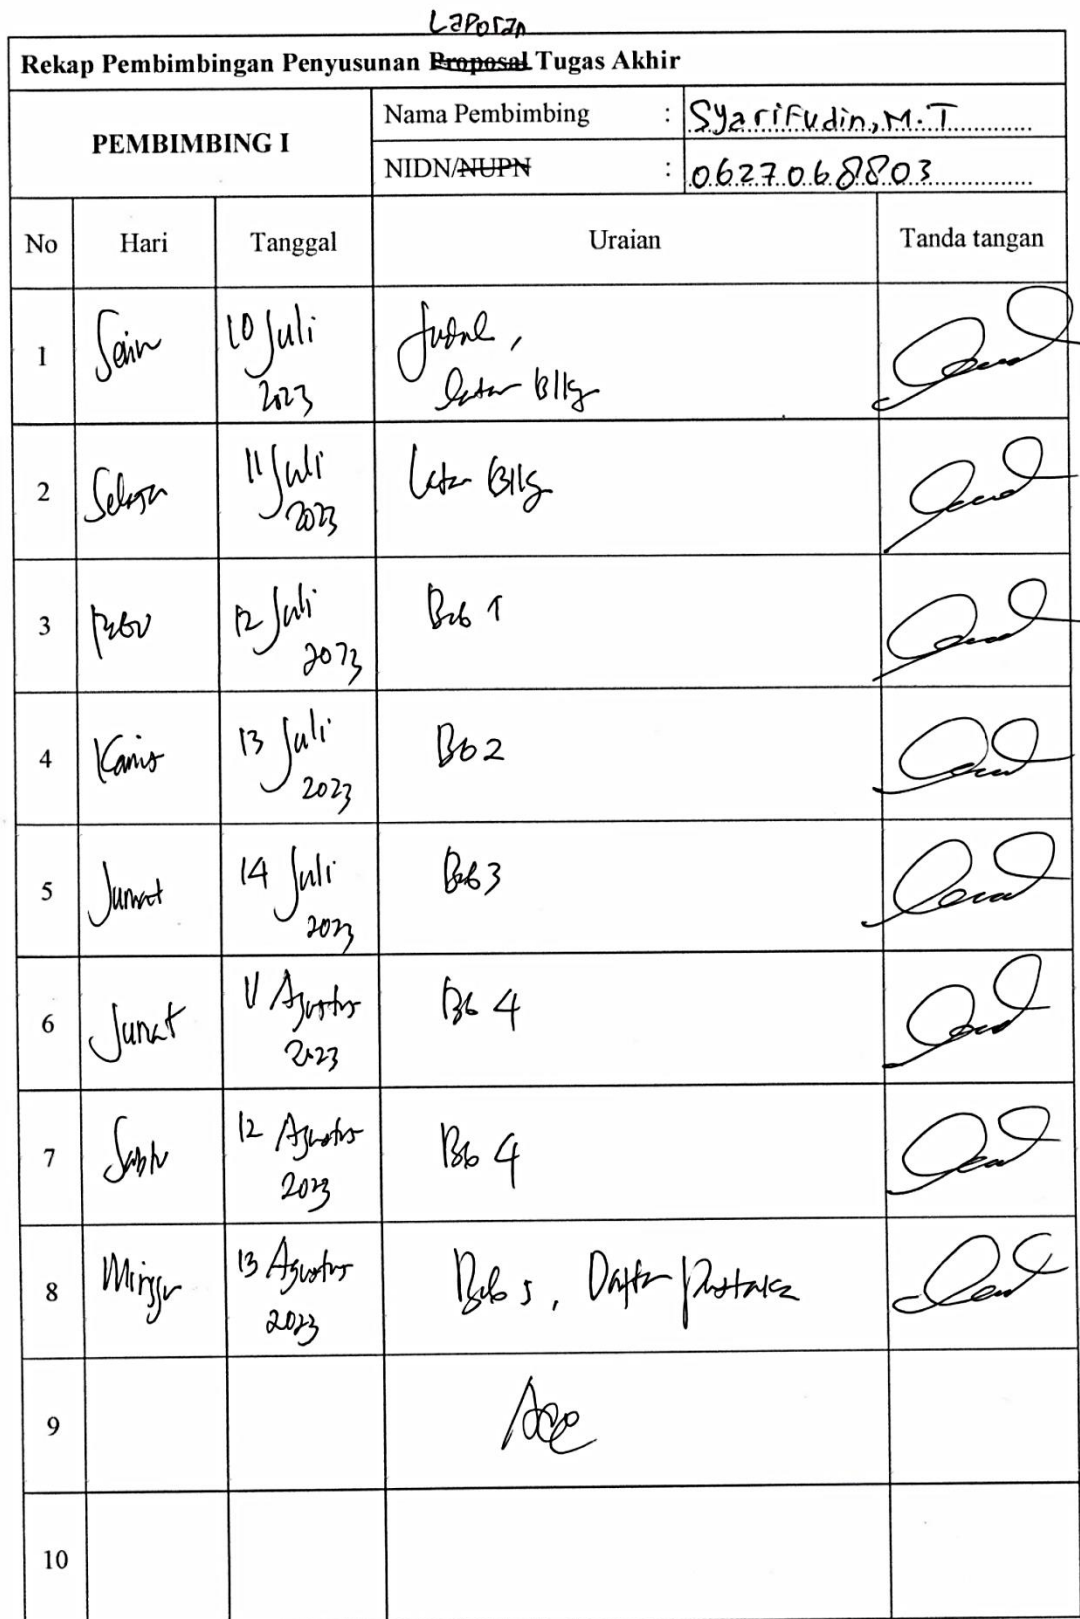 Laporan
Rekap Pembimbingan Penyusunan Proposal Tugas Akhir
PEMBIMBING I
Nama Pembimbing : Syarifudin, M.T
NIDN/NUPN : 0627068803
No Hari Tanggal Uraian Tanda tangan
1 Senin 10 Juli 2023 Judul, latar Blkg
2 Selasa 11 Juli 2023 Latar Blkg
3 Rabu 12 Juli 2023 Bab 1
4 Kamis 13 Juli 2023 Bab 2
5 Jumat 14 Juli 2023 Bab 3
6 Jumat 11 Agustus 2023 Bab 4
7 Sabtu 12 Agustus 2023 Bab 4
8 Minggu 13 Agustus 2023 Bab 5, Daftar Pustaka
9 Acc
10